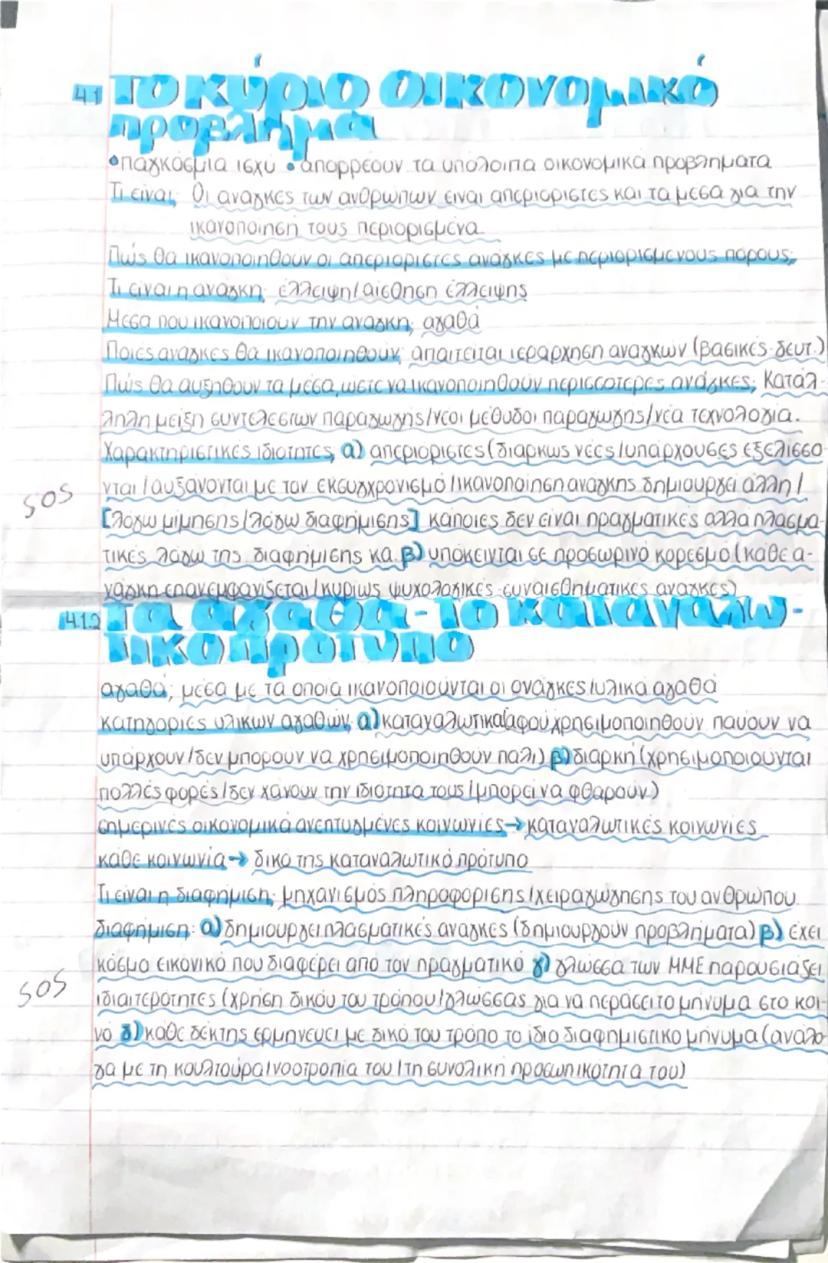 4.1 Το κύριο οικονομικό
πρόβλημα
•παγκοσμια ισχυ •απορρέουν τα υπολοιπα οικονομικα προβληματα
Τι είναι; Οι αναγκες των ανθρωπων ειναι απεριοριστες και τα μεσα για την
ικανοποιησή τους περιορισμενα.
Πώς θα ικανοποιηθουν οι απεριοριστες αναγκες με περιορισμενους πορους;
Τι ειναι η αναγκη; έλλειψη/αισθηση έλλειψης
Μεσα που ικανοποιουν την αναγκη; αγαθά
Ποιες αναγκες θα ικανοποιηθουν; απαιτειται ιεραρχηση αναγκων (βασικές-δευτ.)
Πώς θα αυξηθουν τα μεσα, ωστε να ικανοποιηθούν περισσοτερες ανάγκες; Καταλ-
ληλη μειξη συντελεστων παραγωγης/νεοι μέθοδοι παραγωγης/νέα τεχνολογια.
Χαρακτηριστικές ιδιοτητες; α) απεριοριστες (διαρκως νές/υπάρχουσες εξελισσο-
SOS
νται/αυξανονται με τον εκσυγχρονισμό/ικανοποιηση αναγκης δημιουργει αλλη/
[λόγω μιμησης/λόγω διαφημισης] κάποιες δεν ειναι πραγματικες αλλα πλασμα-
τικές λόγω της διαφημισης κα β) υποκεινται σε προσωρινό κορεσμο (καθε α-
νάγκη επανεμφανίζεται/κυριως ψυχολογικες-συναισθηματικες αναγκες)
4.1.2 Τα αγαθα - το καταναλω-
τικο πρότυπο
αγαθά; μέσα με τα οποια ικανοποιουνται οι ανάγκες/υλικα αγαθά
κατηγοριες υλικων αγαθών; α) καταναλωτικα(αφού χρησιμοποιηθουν παυουν να
υπάρχουν/δεν μπορουν να χρησιμοποιηθουν παλι) β) διαρκή (χρησιμοποιουνται
πολλές φορές/δεν χάνουν την ιδιότητα τους/μπορει να φθαρουν)
σημερινές οικονομικά ανεπτυγμένες κοινωνιες → καταναλωτικές κοινωνιες
κάθε κοινωνία → δικο της καταναλωτικό πρότυπο
Τι είναι η διαφημιση; μηχανισμός πληροφορισης/χειραγωγησης του ανθρωπου
διαφήμιση: α) δημιουργει πλασματικές αναγκες (δημιουργουν προβληματα) β) έχει
κόσμο εικονικό που διαφέρει απο τον πραγματικό γ) γλώσσα των ΜΜΕ παρουσιαζει
SOS
ιδιαιτερότητες (χρήση δικού του τρόπου/γλώσσας για να περάσει το μήνυμα στο κοι-
νό δ) κάθε δέκτης ερμηνευει με δικό του τρόπο το ιδιο διαφημιστικο μήνυμα (αναλο-
γα με τη κουλτούρα/νοοτροπια του/τη συνολική προσωπικοτητα του)